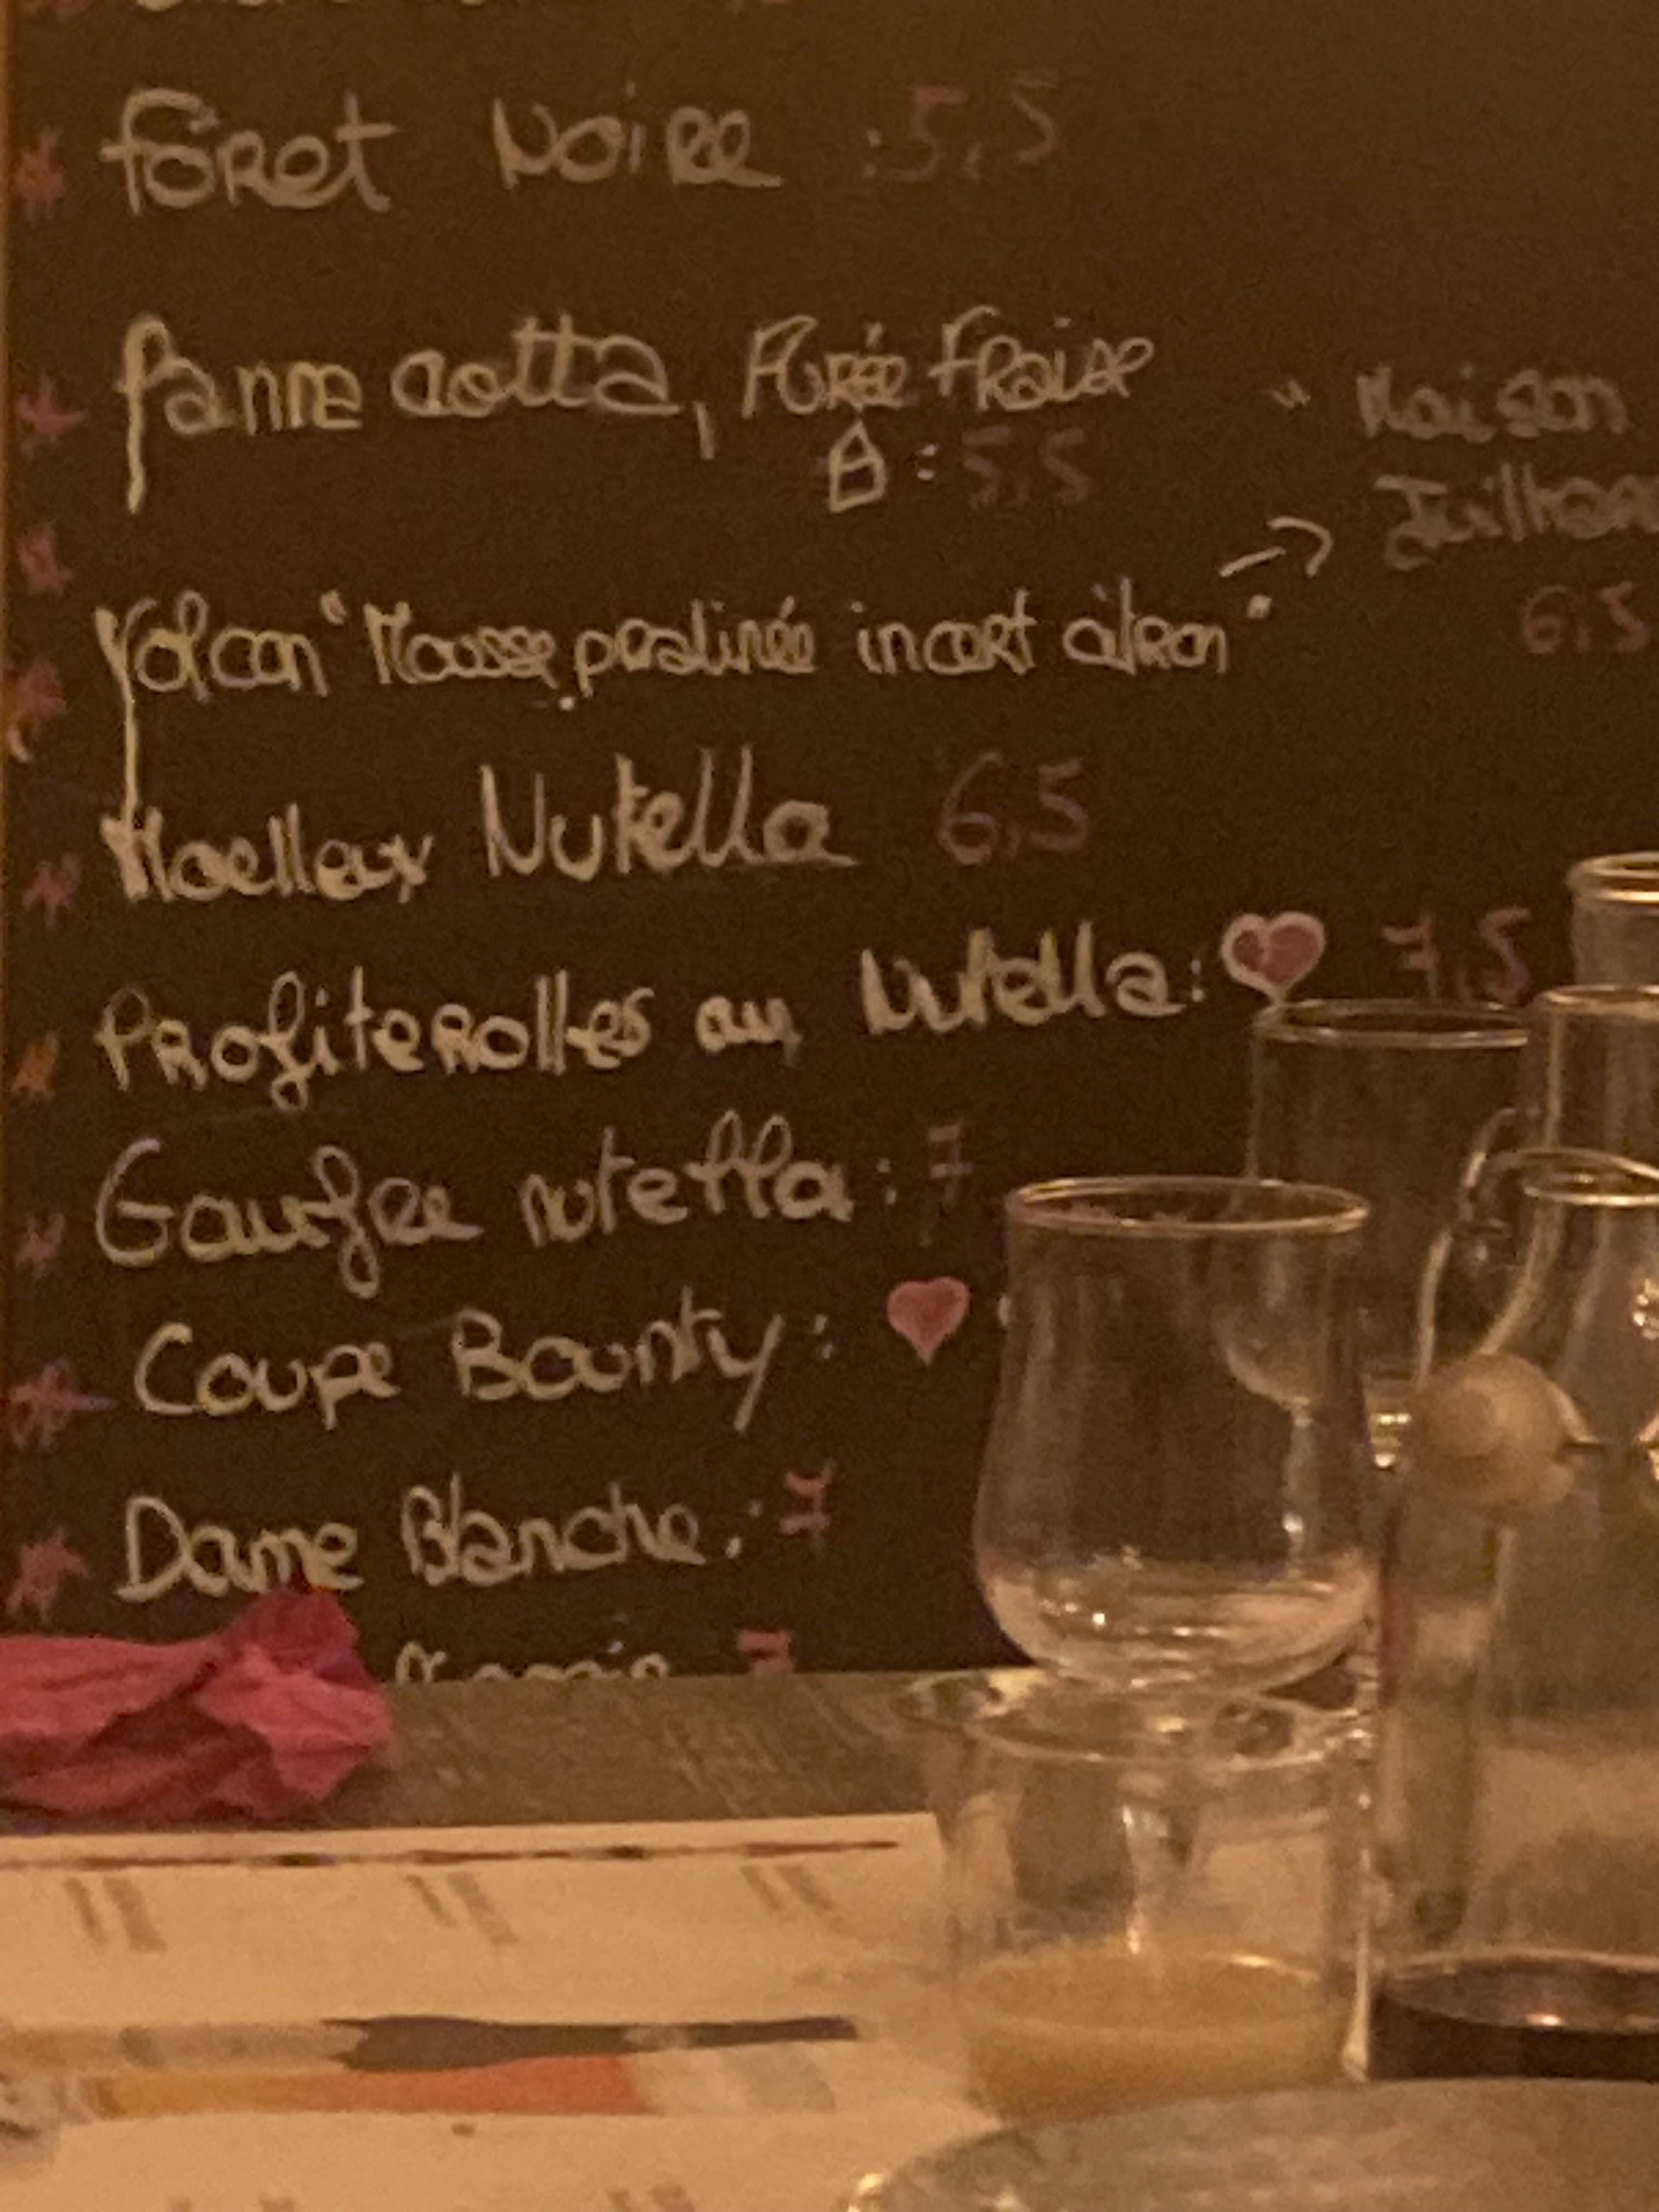 Föret Noire : 5,5
Panna cotta, Purée Fraise
: 5,5
" Maison
→ Juilhard
Volcan "Mousse pralinée incert citron" 6,5
Moelleux Nutella 6,5
Profiterolles au Nutella : 7,5
Gaufre nutella : 7
Coupe Bounty :
Dame Blanche : 7